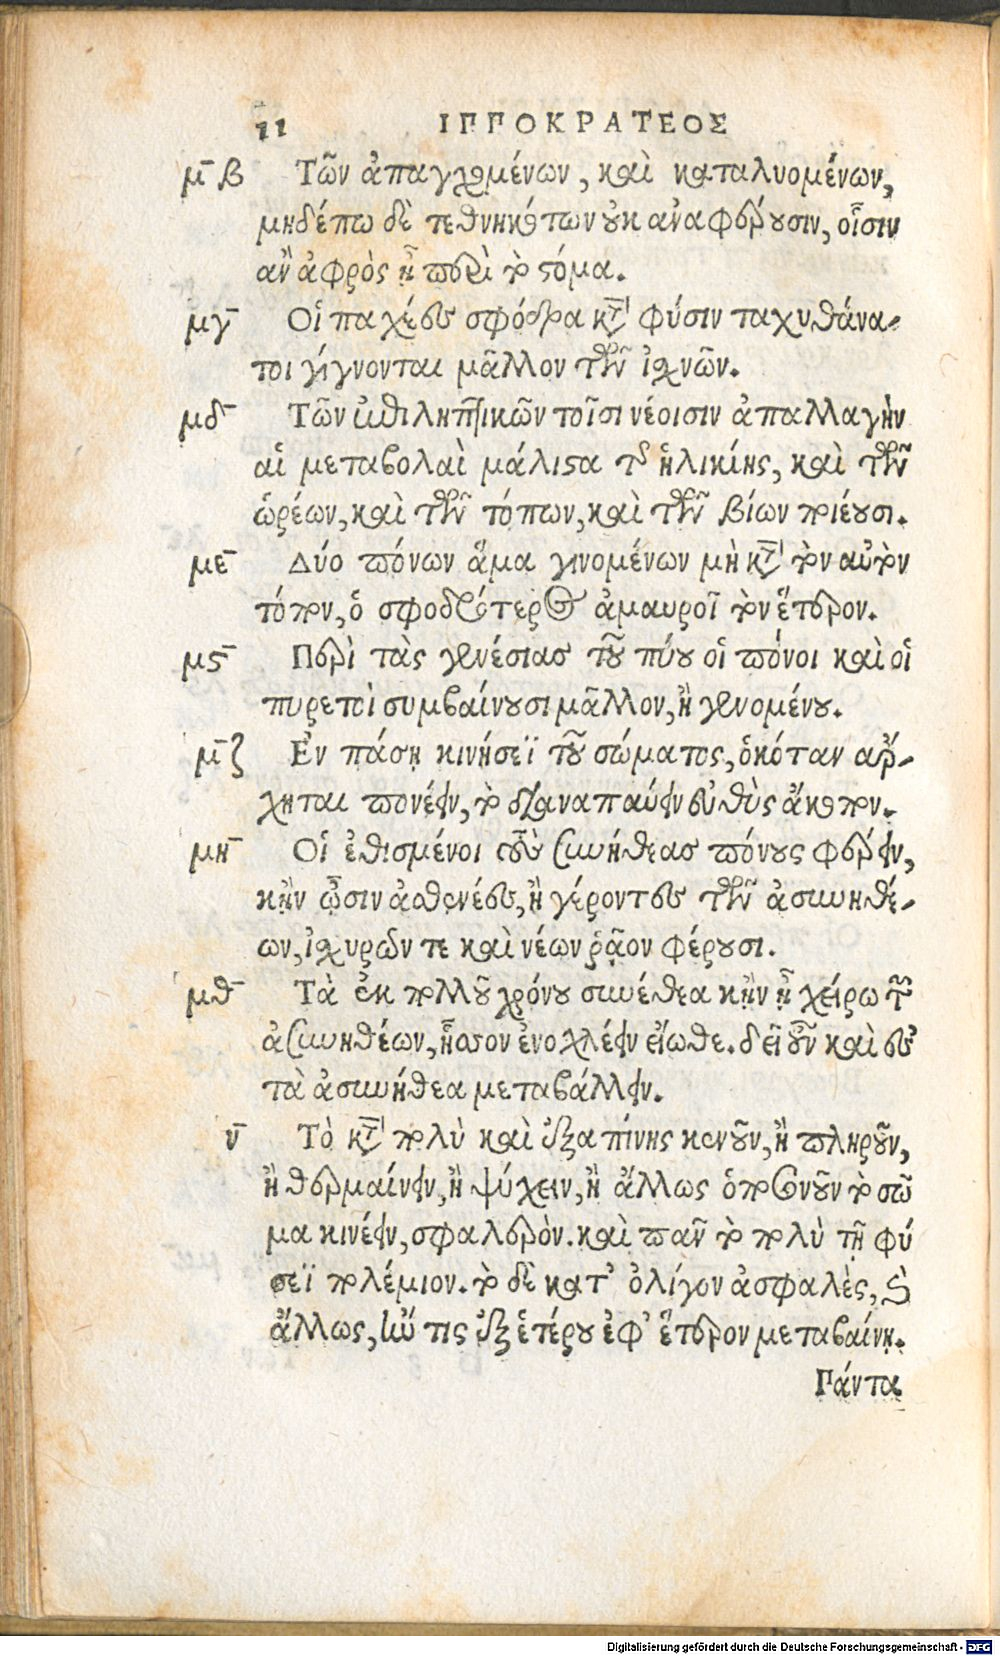 22 ΙΠΠΟΚΡΑΤΕΟΣ
μβ Τῶν ἀπαγχομένων, καὶ καταλυομένων,
μηδέπω δὲ τεθνηκότων οὐκ ἀναφέρουσιν, οἷσιν
ἂν ἀφρὸς ᾖ περὶ τὸ στόμα.
μγ Οἱ παχέες σφόδρα κατὰ φύσιν ταχυθάνα-
τοι γίγνονται μᾶλλον τῶν ἰσχνῶν.
μδ Τῶν ἐπιληπτικῶν τοῖσι νέοισιν ἀπαλλαγὴν
αἱ μεταβολαὶ μάλιστα τῆς ἡλικίης, καὶ τῶν
ὡρέων, καὶ τῶν τόπων, καὶ τῶν βίων ποιέουσι.
με Δύο πόνων ἅμα γινομένων μὴ κατὰ τὸν αὐτὸν
τόπον, ὁ σφοδρότερος ἀμαυροῖ τὸν ἕτερον.
μϛ Περὶ τὰς γενέσιας τοῦ πύου οἱ πόνοι καὶ οἱ
πυρετοὶ συμβαίνουσι μᾶλλον, ἢ γενομένου.
μζ Ἐν πάσῃ κινήσεϊ τοῦ σώματος, ὁκόταν ἄρ-
χηται πονέειν, τὸ διαναπαύειν εὐθὺς ἄκοπον.
μη Οἱ ἐθισμένοι τοὺς συνήθεας πόνους φέρειν,
κἢν ὦσιν ἀσθενέες, ἢ γέροντες τῶν ἀσυνηθέ-
ων, ἰσχυρῶν τε καὶ νέων ῥᾷον φέρουσι.
μθ Τὰ ἐκ πολλοῦ χρόνου συνέθεα κἢν ᾖ χείρω τῶν
ἀσυνηθέων, ἧσσον ἐνοχλέειν εἴωθε. δεῖ οὖν καὶ ἐς
τὰ ἀσυνήθεα μεταβάλλειν.
ν Τὸ κατὰ πολὺ καὶ ἐξαπίνης κενοῦν, ἢ πληροῦν,
ἢ θερμαίνειν, ἢ ψύχειν, ἢ ἄλλως ὁπωσοῦν τὸ σῶ
μα κινέειν, σφαλερὸν. καὶ πᾶν τὸ πολὺ τῇ φύ
σεϊ πολέμιον. τὸ δὲ κατ' ὀλίγον ἀσφαλὲς, καὶ
ἄλλως, κἤν τις ἐξ ἑτέρου ἐφ' ἕτερον μεταβαίνῃ.
Πάντα
Digitalisierung gefördert durch die Deutsche Forschungsgemeinschaft - DFG